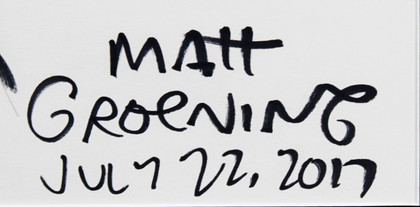 MATT
GROENING
JULY 22, 2017